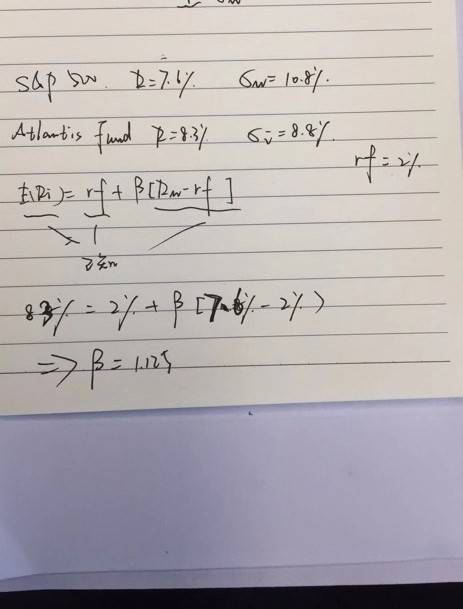 S&P 500. R=7.6% σm=10.8%.
Atlantis fund R=8.3% σi=8.8%.
rf=2%
E(Ri)= rf + β[Rm-rf]
已知
8.3% = 2% + β [7.6% - 2%)
=> β = 1.125